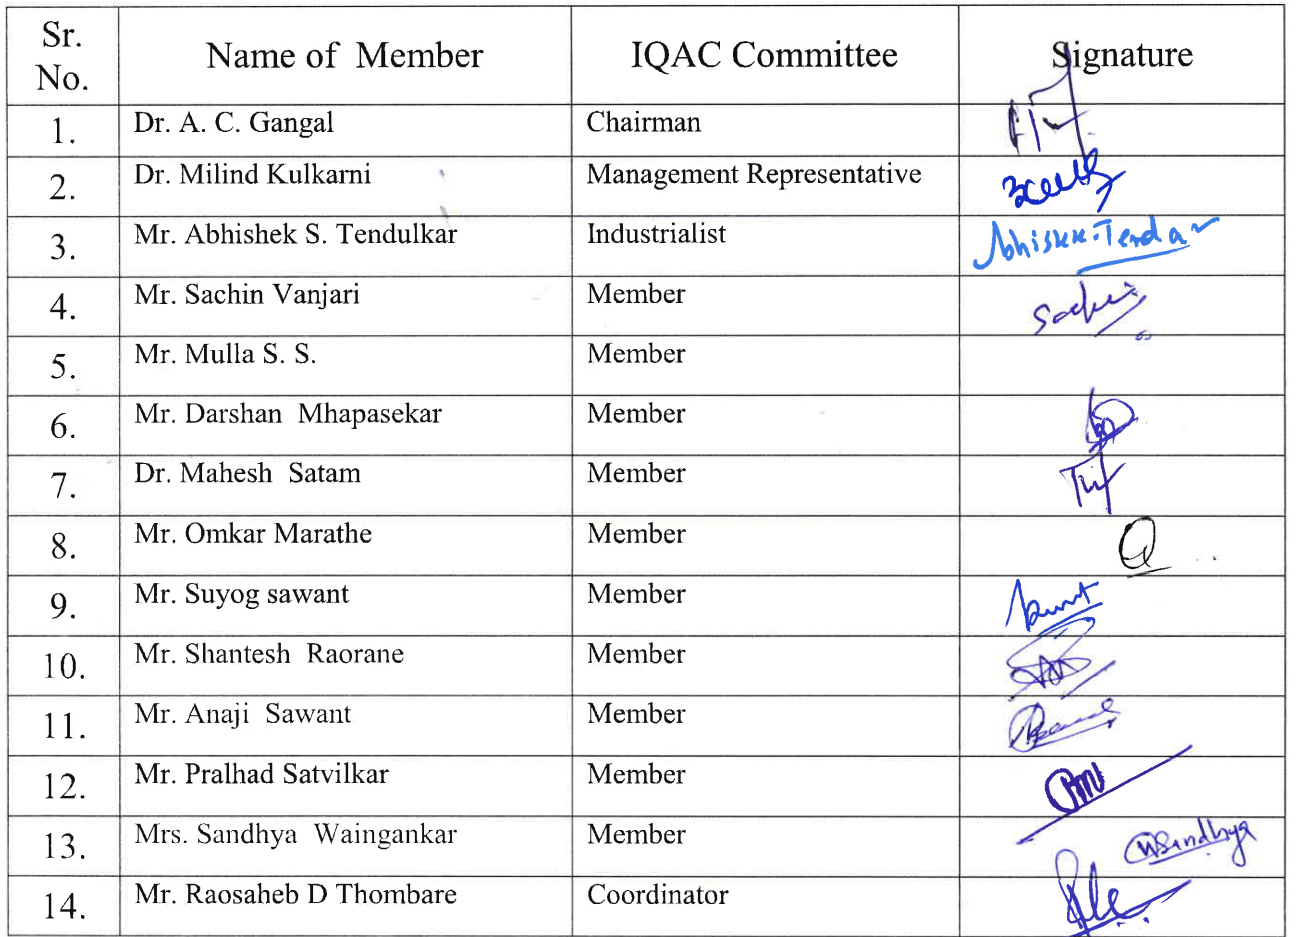 Sr. No. Name of Member IQAC Committee Signature
1. Dr. A. C. Gangal Chairman
2. Dr. Milind Kulkarni Management Representative
3. Mr. Abhishek S. Tendulkar Industrialist
4. Mr. Sachin Vanjari Member
5. Mr. Mulla S. S. Member
6. Mr. Darshan Mhapasekar Member
7. Dr. Mahesh Satam Member
8. Mr. Omkar Marathe Member
9. Mr. Suyog sawant Member
10. Mr. Shantesh Raorane Member
11. Mr. Anaji Sawant Member
12. Mr. Pralhad Satvilkar Member
13. Mrs. Sandhya Waingankar Member Sandhya
14. Mr. Raosaheb D Thombare Coordinator